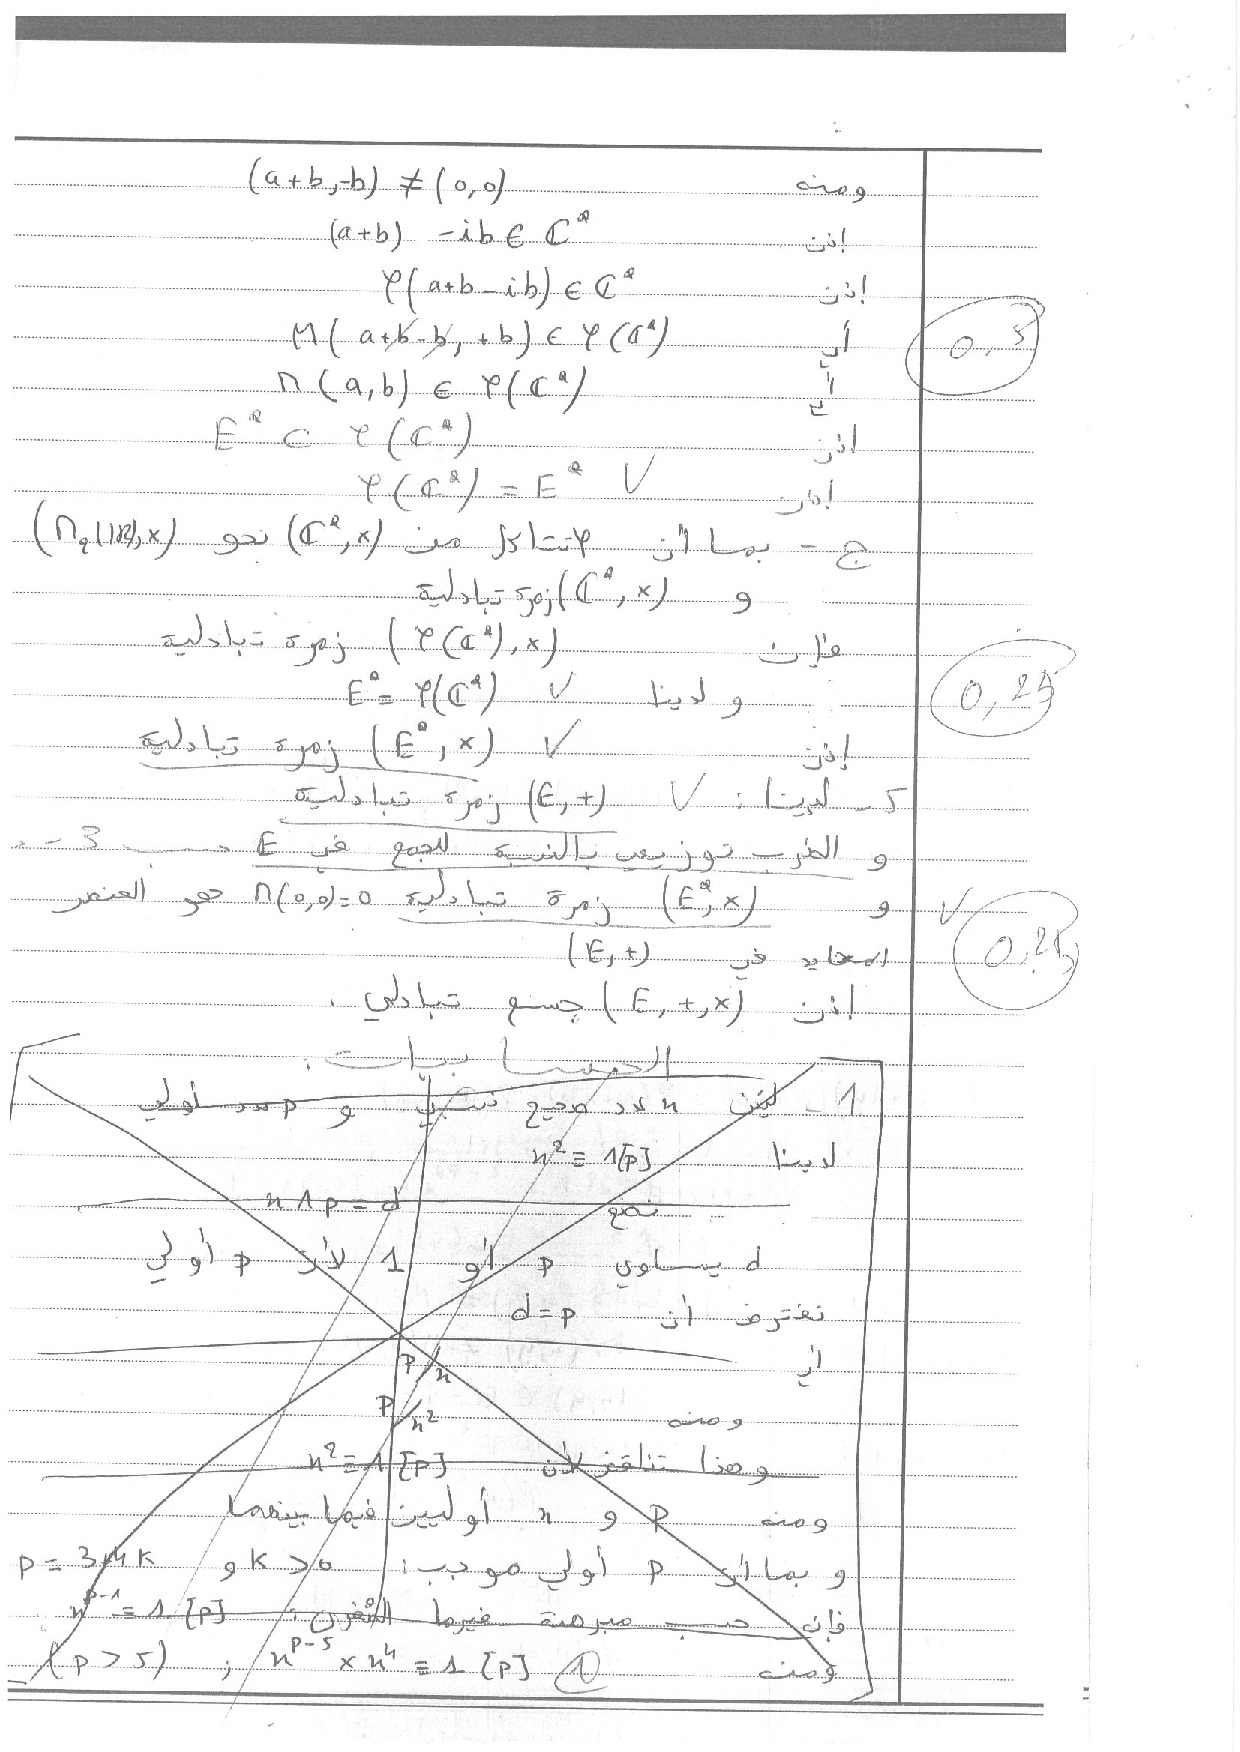 ومنه (a+b,-b) ≠ (0,0)
إذن (a+b) -ib ∈ ℂ*
إذن φ(a+b-ib) ∈ ℂ*
أي M(a+b-b, +b) ∈ φ(ℂ*)
أي M(a,b) ∈ φ(ℂ*)
0,5
إذن E* ⊂ φ(ℂ*)
إذن φ(ℂ*) = E* √
ج - بما أن φ تشاكل من (ℂ*,×) نحو (M₂(ℝ),×)
و (ℂ*,×) زمرة تبادلية
فإن (φ(ℂ*),×) زمرة تبادلية
ولدينا E* = φ(ℂ*) √
0,25
إذن (E*,×) زمرة تبادلية √
5 - لدينا : (E,+) زمرة تبادلية √
و الضرب توزيعي بالنسبة للجمع في E حسب 3 -
و (E*,×) زمرة تبادلية M(0,0)=0 هو العنصر √
0,25
المحايد في (E,+)
إذن (E,+,×) جسم تبادلي .
الحسابيات :
1 - ليكن n عدد صحيح نسبي و p عدد أولي
لدينا n² ≡ 1[p]
نضع n∧p = d
d يساوي p أو 1 لأن p أولي
نفترض أن d=p
أي p/n
ومنه p/n²
وهذا تناقض لأن n² ≡ 1 [p]
ومنه p و n أوليين فيما بينهما
و بما أن p أولي موجب : k>0 و p = 3+4k
فإن حسب مبرهنة فيرما الصغرى : n^{p-1} ≡ 1 [p]
ومنه ① n^{p-5} × n⁴ ≡ 1 [p] ; (p>5)